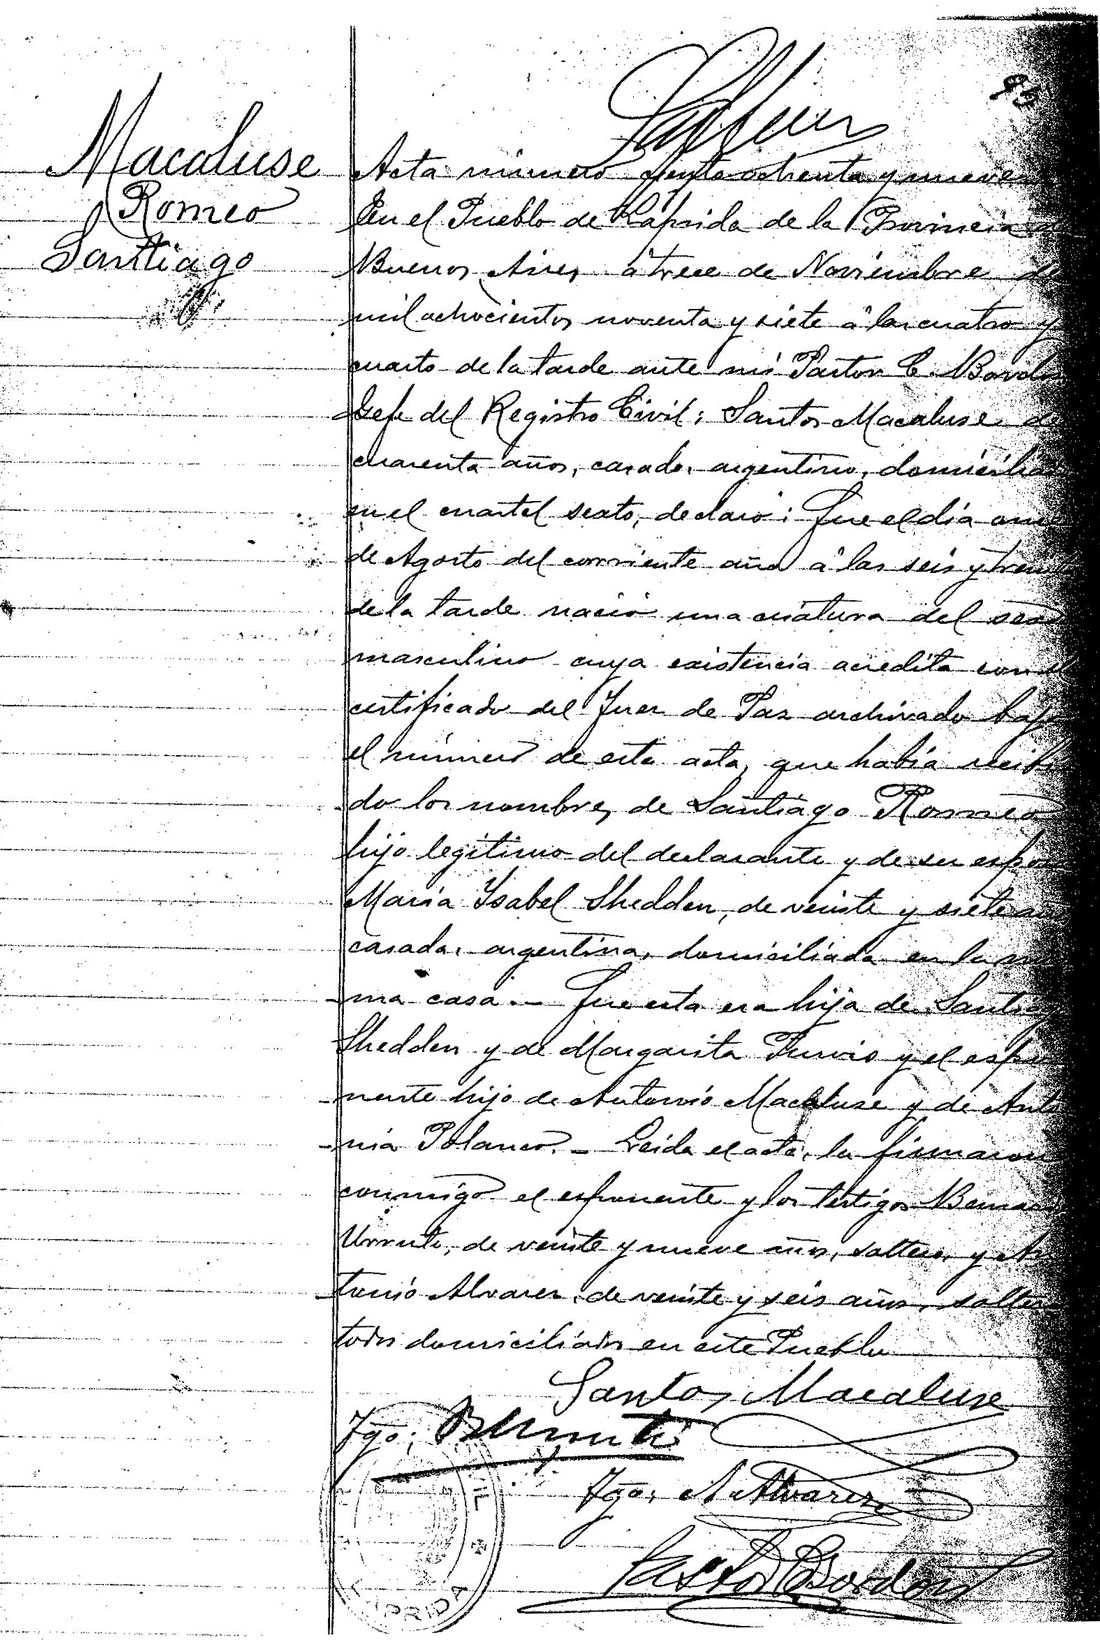 95
Macaluse
Romeo
Santiago
Acta número ciento ochenta y nueve
En el Pueblo de Laprida de la Provincia de
Buenos Aires, á trece de Noviembre de
mil ochocientos noventa y siete á las cuatro y
cuarto de la tarde ante mi Pastor C. Bordon
Gefe del Registro Civil: Santos Macaluse, de
cuarenta años, casado, argentino, domicilia
en el cuartel sexto, declaró: Que el día
de Agosto del corriente año á las seis y
de la tarde nació una criatura del sexo
masculino cuya existencia acredita con
certificado del Juez de Paz archivado bajo
el número de esta acta, que había recibi
do los nombres de Santiago Romeo
hijo legítimo del declarante y de su espo
María Ysabel Shedden, de veinte y siete
casada, argentina, domiciliada en la mis
ma casa.- Que esta era hija de Santiag
Shedden y de Margarita Turvis y el expo
nente hijo de Antonio Macaluse y de Anto
nia Polanco.- Leida el acta, la firmaron
conmigo el esponente y los testigos
Urruti, de veinte y nueve años, soltero, y An
tonio Alvarez, de veinte y seis años, solter
todos domiciliados en este Pueblo
Santos Macaluse
Tgo: BUrruti
Tgo: A Alvarez
Pastor C Bordon
IL
LAPRIDA